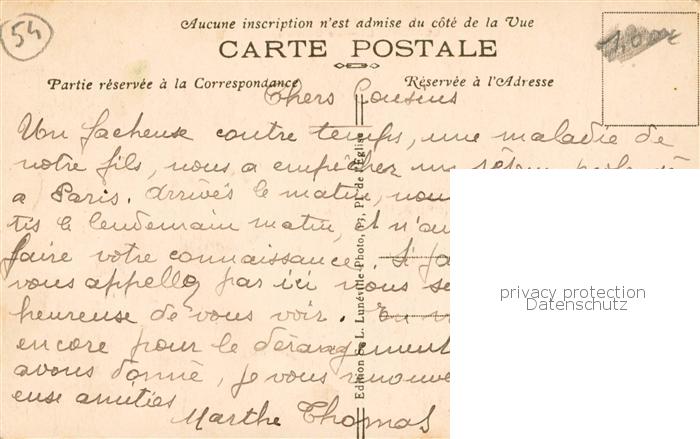 54
Aucune inscription n'est admise du côté de la Vue
CARTE POSTALE
Partie réservée à la Correspondance
Réservée à l'Adresse
1,00€
Chers Cousins
Un facheuse contre temps, une maladie de
notre fils, nous a empêcher un
a Paris. Arrivés le matin, nou
tis le lendemain matin, et n'au
faire votre connaissance. Si ja
vous appelley par ici nous se
heureuse de vous voir. En
encore pour le dérangement
avons donné, je vous renouve
euse amitiés
Marthe Thomas
Edition de L. Lunéville-Photo, 23, Pl. de l'Eglise
privacy protection
Datenschutz